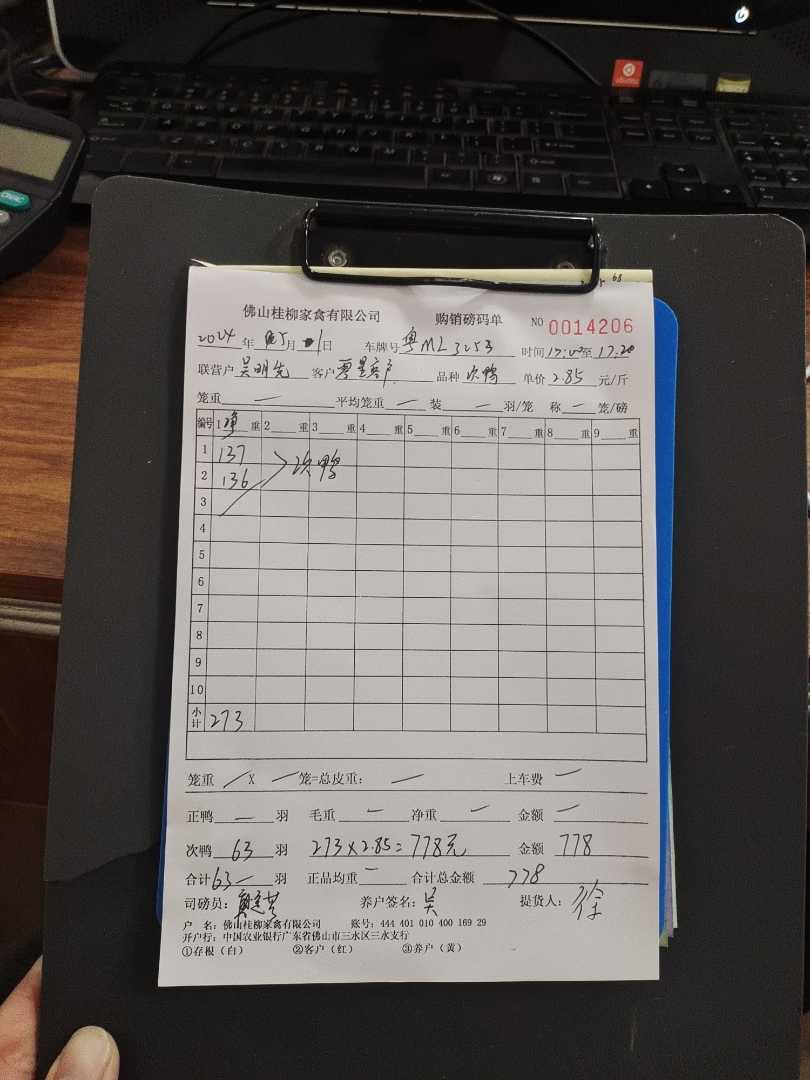 佛山桂柳家禽有限公司 购销磅码单 NO 0014206
2024年 5月 1日 车牌号 粤ML3253 时间 17:00至 17:20
联营户 吴明先 客户 零星客户 品种 次鸭 单价 2.85 元/斤
笼重 — 平均笼重 — 装 — 羽/笼 称 — 笼/磅
编号 1 净 重 2 重 3 重 4 重 5 重 6 重 7 重 8 重 9 重
1 137
次鸭
2 136
3
4
5
6
7
8
9
10
小计 273
笼重 — X — 笼=总皮重: — 上车费 —
正鸭 — 羽 毛重 — 净重 — 金额 —
次鸭 63 羽 273×2.85=778元 金额 778
合计 63 — 羽 正品均重 — 合计总金额 778
司磅员: 养户签名: 吴 提货人: 徐
户 名: 佛山桂柳家禽有限公司 账号: 444 401 010 400 169 29
开户行: 中国农业银行广东省佛山市三水区三水支行
①存根(白) ②客户(红) ③养户(黄)